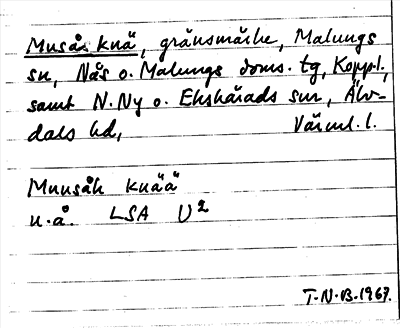 Musåsknä, gränsmärke, Malungs
sn, Näs o. Malungs doms. tg, Koppl.,
samt N. Ny o. Ekshärads snr, Älv-
dals hd, Värml. l.
Muusåk knää
u. å. LSA U2
T-N-B-1967.